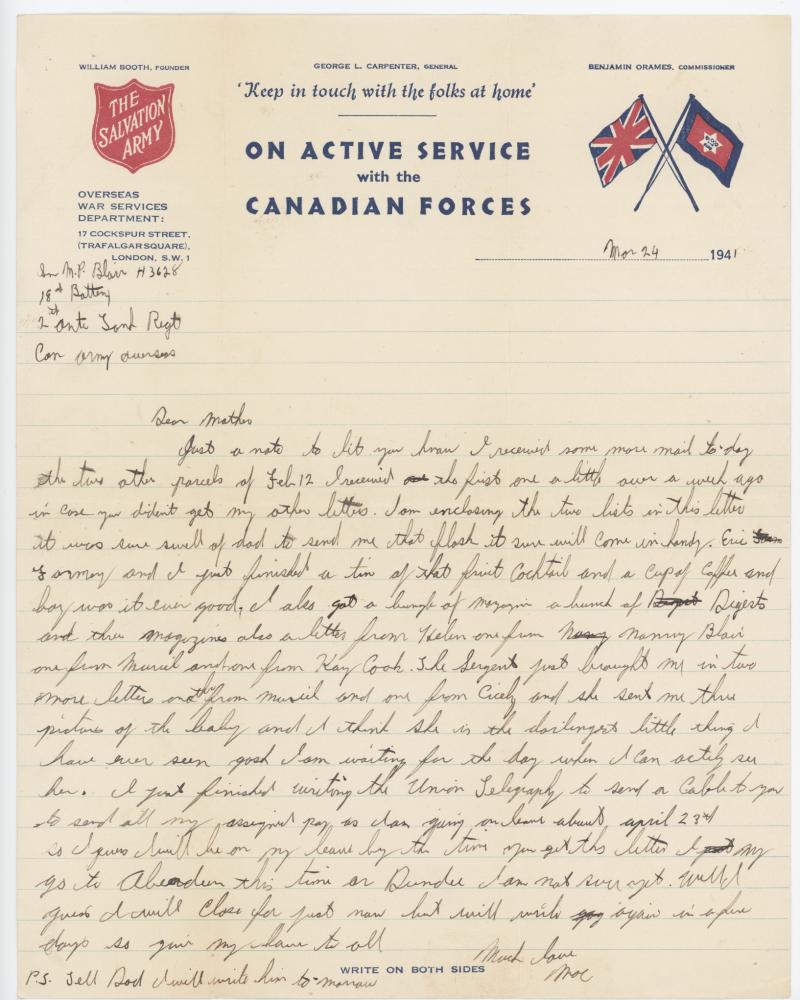 WILLIAM BOOTH, FOUNDER
GEORGE L. CARPENTER, GENERAL
BENJAMIN ORAMES, COMMISSIONER
THE
SALVATION
ARMY
'Keep in touch with the folks at home'
ON ACTIVE SERVICE
with the
CANADIAN FORCES
OVERSEAS
WAR SERVICES
DEPARTMENT:
17 COCKSPUR STREET,
(TRAFALGAR SQUARE),
LONDON, S.W.1
Mar 24 1941
Gnr M.P. Blair H3628
18th Battery
2nd ante Tank Regt
Can army overseas
Dear Mother
Just a note to let you know I received some more mail to-day
the two other parcels of Feb 12 I received the first one a little over a week ago
in case you dident get my other letters. I am enclosing the two lists in this letter
it was sure swell of dad to send me that flask it sure will come in handy. Eric
Formey and I just finished a tin of that fruit Cocktail and a cup of Coffee and
boy was it ever good, I also got a bunch of magazin a bunch of Digests
and three magazines also a letter from Helen one from Nanny Blair
one from Muriel and one from Kay Cook. The Sergent just brought me in two
more letters another from muriel and one from Cicely and she sent me three
pictures of the baby and I think she is the darlingest little thing I
have ever seen gosh I am waiting for the day when I can actily see
her. I just finished writing the Union Telegraph to send a Cable to you
to send all my assigned pay as I am going on leave about april 23rd
so I guess I will be on my leave by the time you get this letter I my
go to Aberdeen this time or Dundee I am not sure yet. Well I
guess I will close for just now but will write again in a few
days so give my love to all
Much love
Moc
P.S. Tell Dad I will write him to-morrow
WRITE ON BOTH SIDES